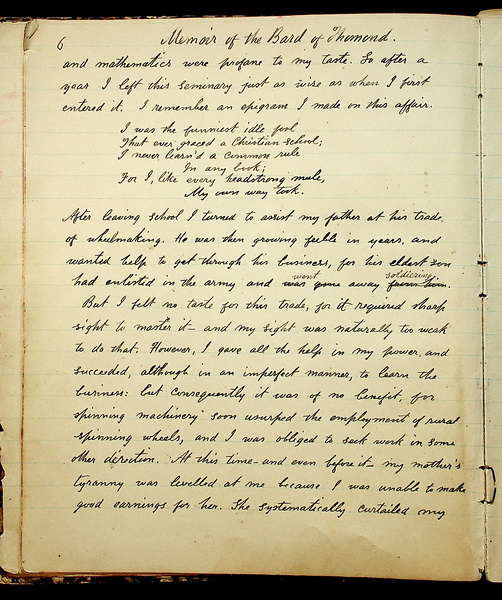 6 Memoir of the Bard of Thomond.
and mathematics were profane to my taste. So after a
year I left this seminary just as wise as when I first
entered it. I remember an epigram I made on this affair.
I was the funniest idle fool
That ever graced a Christian school;
I never learn'd a common rule
In any book;
For I, like every headstrong mule,
My own way took.
After leaving school I turned to assist my father at his trade
of wheelmaking. He was then growing feeble in years, and
wanted help to get through his business, for his eldest son
went soldiering
had enlisted in the army and was gone away from him.
But I felt no taste for this trade, for it required sharp
sight to master it – and my sight was naturally too weak
to do that. However, I gave all the help in my power, and
succeeded, although in an imperfect manner, to learn the
business: but consequently it was of no benefit, for
spinning machinery soon usurped the employment of rural
spinning wheels, and I was obliged to seek work in some
other direction. At this time – and even before it – my mother's
tyranny was levelled at me because I was unable to make
good earnings for her. She systematically curtailed my